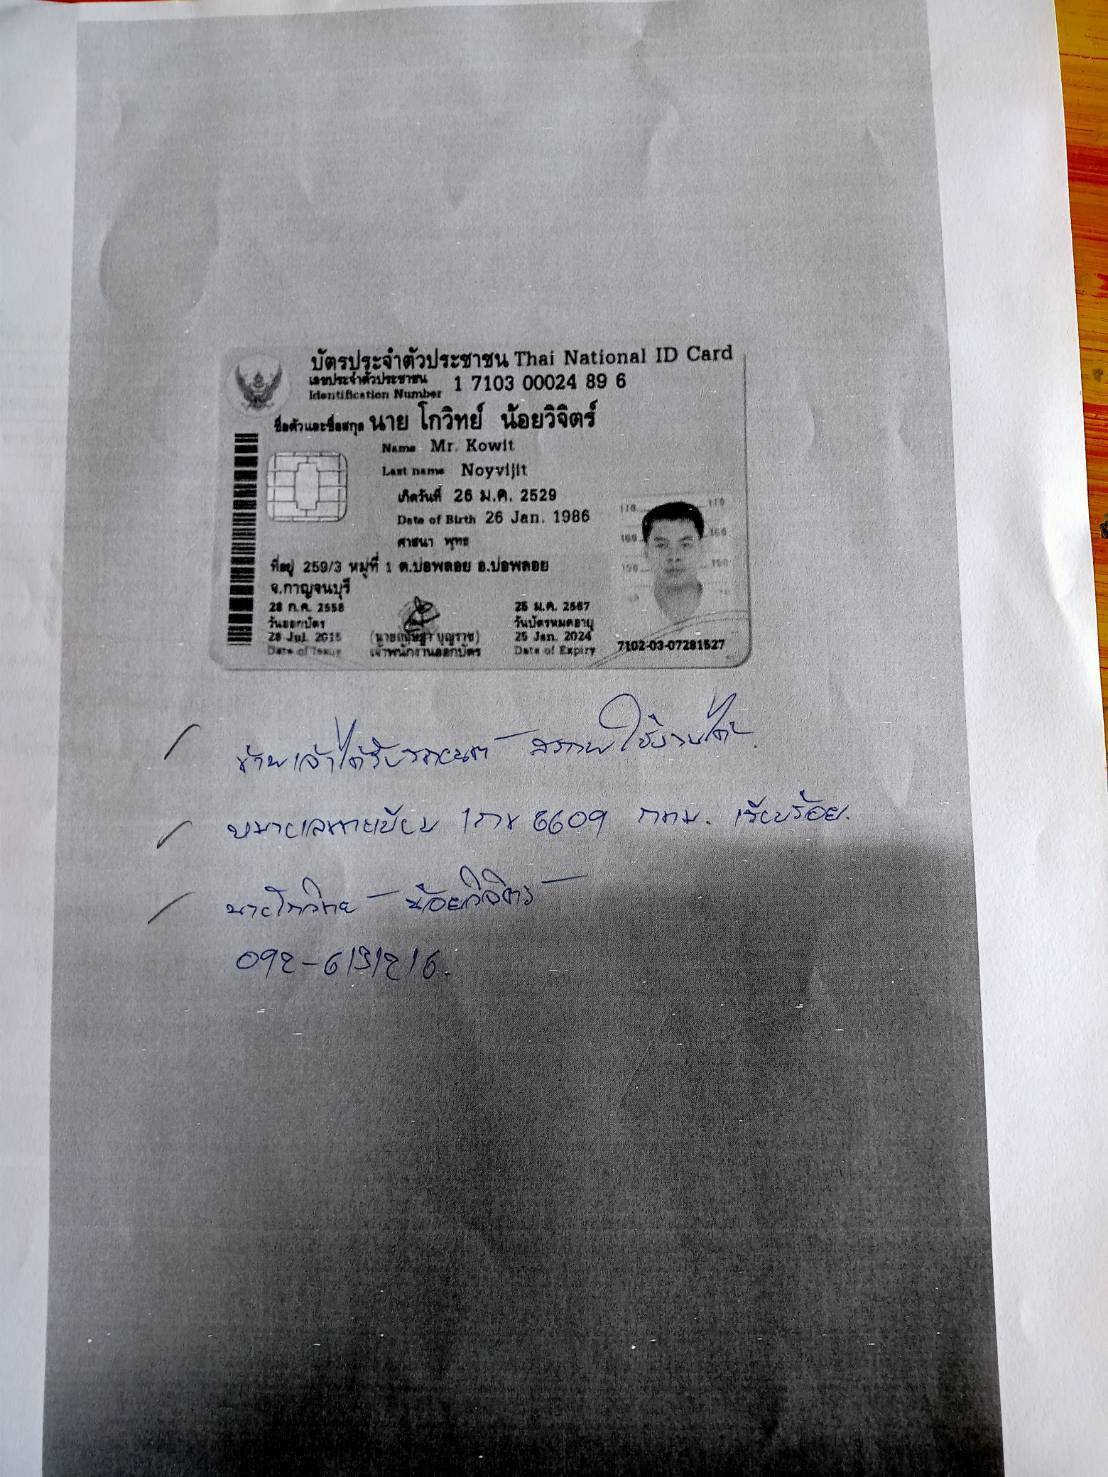 บัตรประจำตัวประชาชน Thai National ID Card
เลขประจำตัวประชาชน
Identification Number 1 7103 00024 89 6
ชื่อตัวและชื่อสกุล นาย โกวิทย์ น้อยวิจิตร์
Name Mr. Kowit
Last name Noyvijit
เกิดวันที่ 26 ม.ค. 2529
Date of Birth 26 Jan. 1986
ศาสนา พุทธ
ที่อยู่ 259/3 หมู่ที่ 1 ต.บ่อพลอย อ.บ่อพลอย
จ.กาญจนบุรี
28 ก.ค. 2558
วันออกบัตร
28 Jul. 2015
Date of Issue
บุญราช)
เจ้าพนักงานออกบัตร
25 ม.ค. 2567
วันบัตรหมดอายุ
25 Jan. 2024
Date of Expiry
7102-03-07281527
ข้าพเจ้าได้รับรถยนต์ สภาพใช้งานได้
หมายเลขทะเบียน 6609 กทม. เรียบร้อย.
นายโกวิทย์ น้อยวิจิตร์
092-6131216.